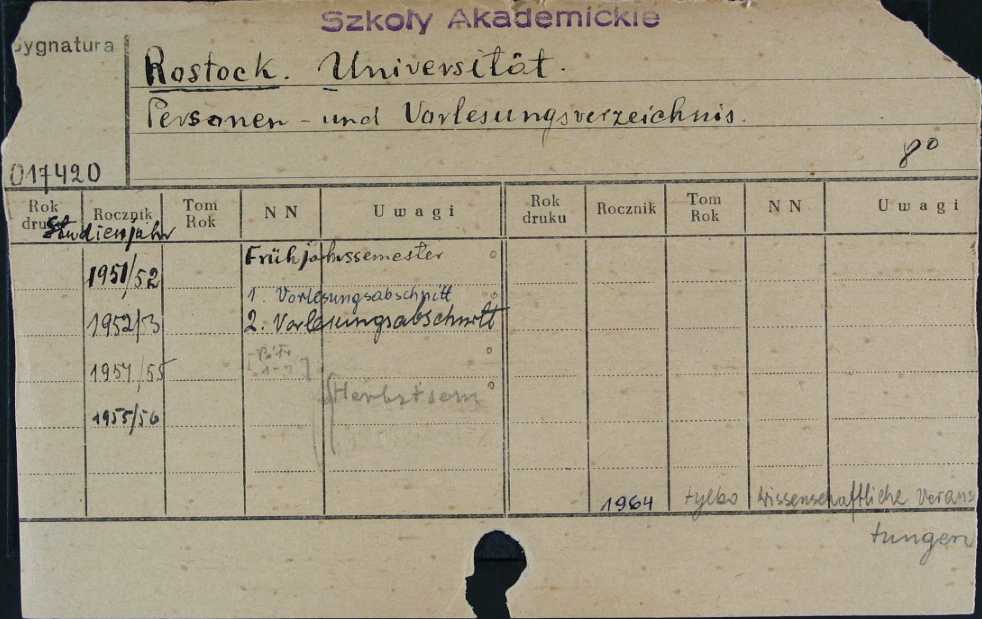 Szkoły Akademickie
Sygnatura
Rostock. Universität.
Personen - und Vorlesungsverzeichnis.
8°
017420
Rok druku Rocznik Tom Rok N N Uwagi Rok druku Rocznik Tom Rok N N Uwagi
Studienjahr
1951/52 Frühjahrssemester
1. Vorlesungsabschnitt
1952/53 2. Vorlesungsabschnitt
1954/55
Herbstsem
1955/56
1964 tylko Wissenschaftliche Verans
tungen